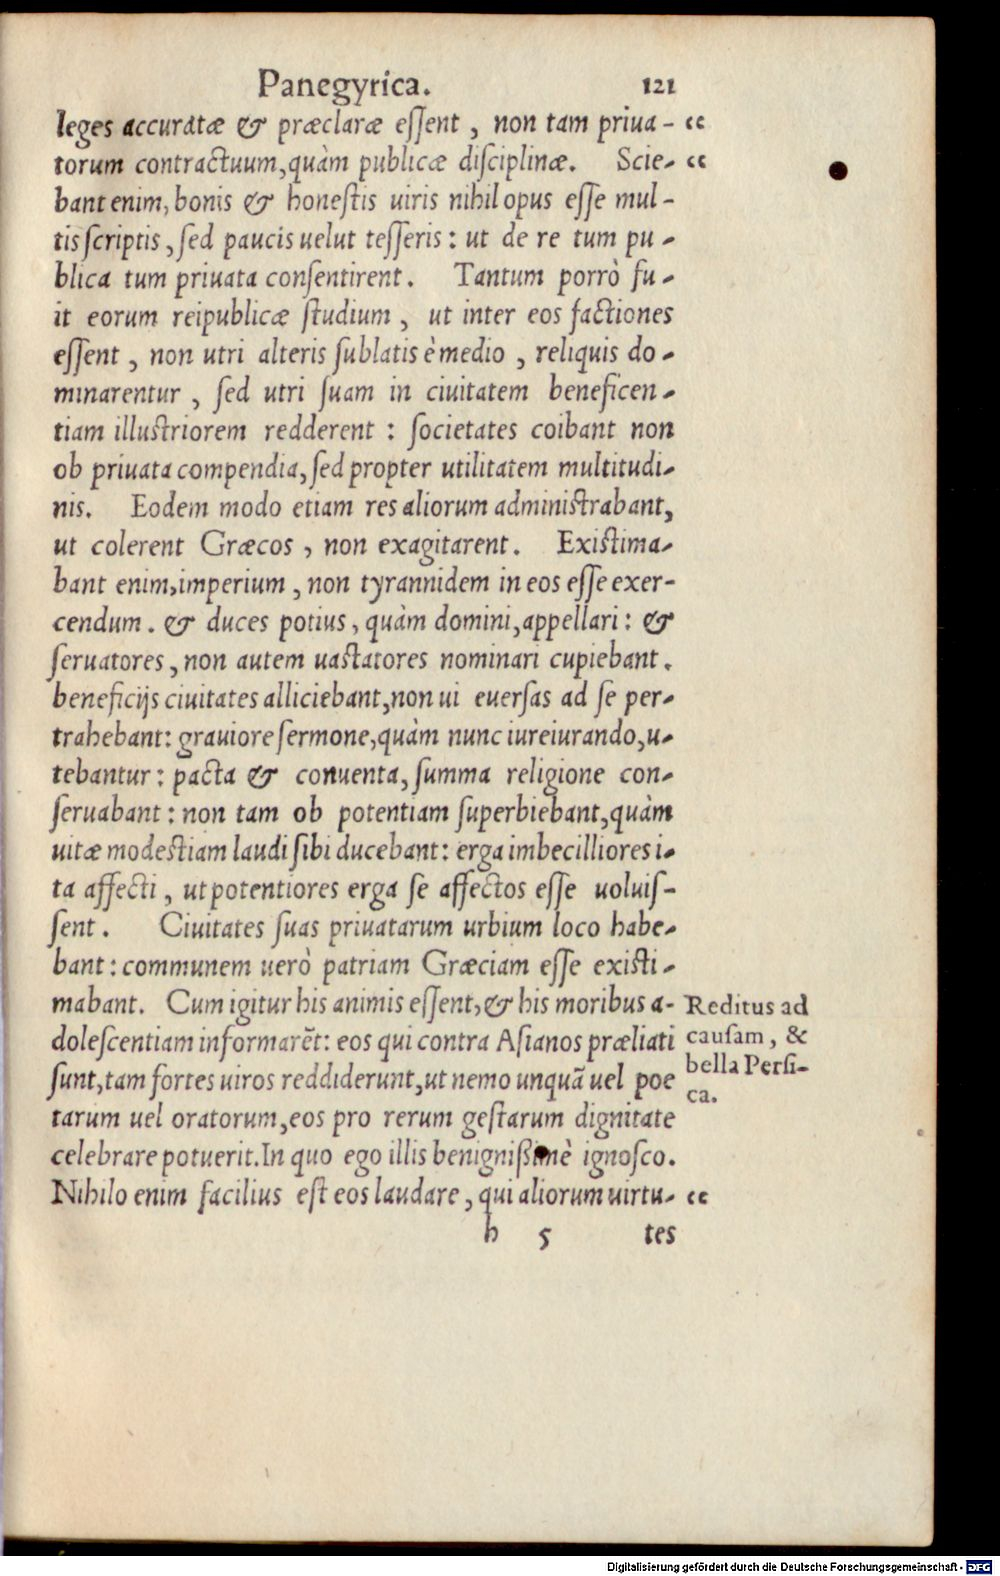 Panegyrica. 121
leges accuratæ & præclaræ eſſent, non tam priua- "
torum contractuum, quàm publicæ diſciplinæ. Scie- "
bant enim, bonis & honeſtis uiris nihil opus eſſe mul-
tis ſcriptis, ſed paucis uelut teſſeris: ut de re tum pu-
blica tum priuata conſentirent. Tantum porrò fu-
it eorum reipublicæ ſtudium, ut inter eos factiones
eſſent, non utri alteris ſublatis è medio, reliquis do-
minarentur, ſed utri ſuam in ciuitatem beneficen-
tiam illuſtriorem redderent: ſocietates coibant non
ob priuata compendia, ſed propter utilitatem multitudi-
nis. Eodem modo etiam res aliorum adminiſtrabant,
ut colerent Græcos, non exagitarent. Exiſtima-
bant enim, imperium, non tyrannidem in eos eſſe exer-
cendum. & duces potius, quàm domini, appellari: &
ſeruatores, non autem uaſtatores nominari cupiebant.
beneficijs ciuitates alliciebant, non ui euerſas ad ſe per-
trahebant: grauiore ſermone, quàm nunc iureiurando, u-
tebantur: pacta & conuenta, ſumma religione con-
ſeruabant: non tam ob potentiam ſuperbiebant, quàm
uitæ modeſtiam laudi ſibi ducebant: erga imbecilliores i-
ta affecti, ut potentiores erga ſe affectos eſſe voluiſ-
ſent. Ciuitates ſuas priuatarum urbium loco habe-
bant: communem uerò patriam Græciam eſſe exiſti-
mabant. Cum igitur his animis eſſent, & his moribus a-
doleſcentiam informarẽt: eos qui contra Aſianos præliati
ſunt, tam fortes uiros reddiderunt, ut nemo unquã uel poe
tarum uel oratorum, eos pro rerum geſtarum dignitate
celebrare potuerit. In quo ego illis benignißimè ignoſco.
Nihilo enim facilius eſt eos laudare, qui aliorum uirtu- "
h 5 tes
Reditus ad
cauſam, &
bella Perſi-
ca.
Digitalisierung gefördert durch die Deutsche Forschungsgemeinschaft - DFG